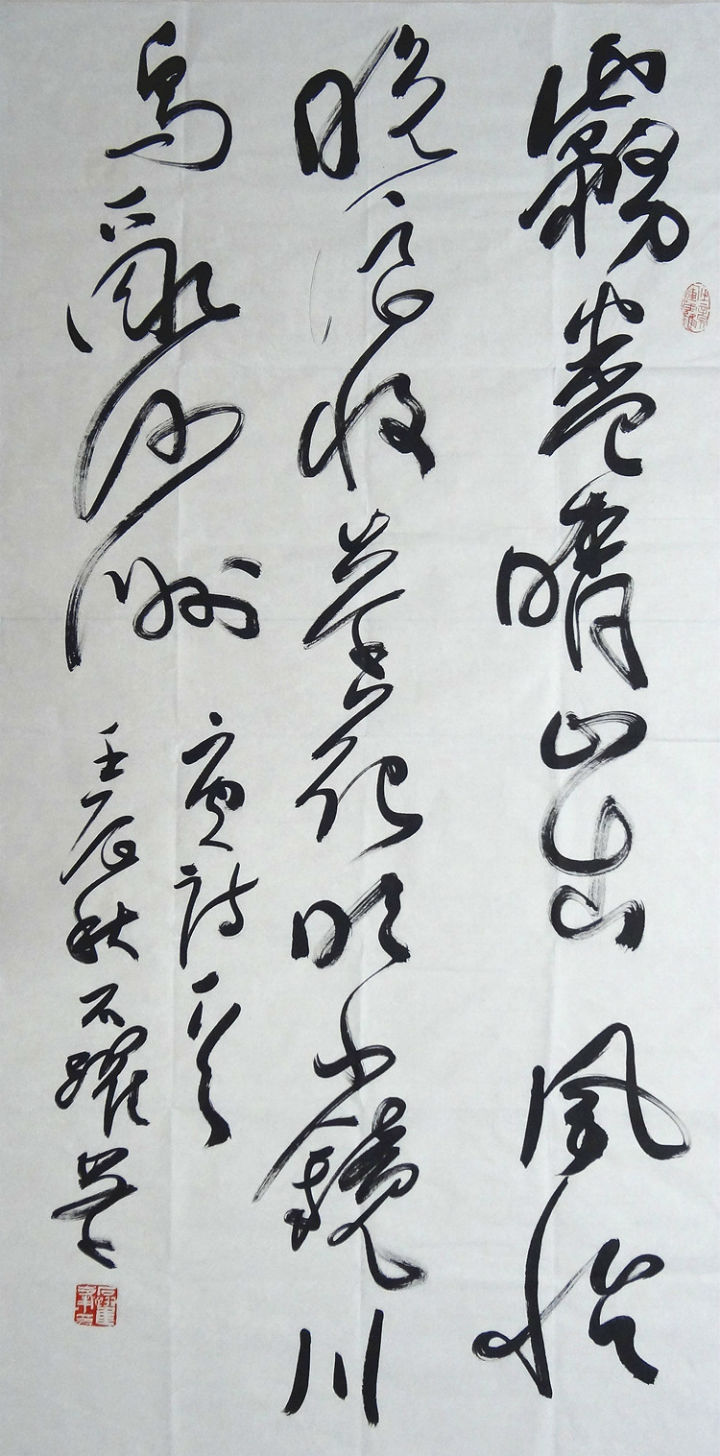 霧卷晴山出風恬
晚浪收岸花明水樹川
鳥亂沙洲
唐詩一首
壬辰秋石躍